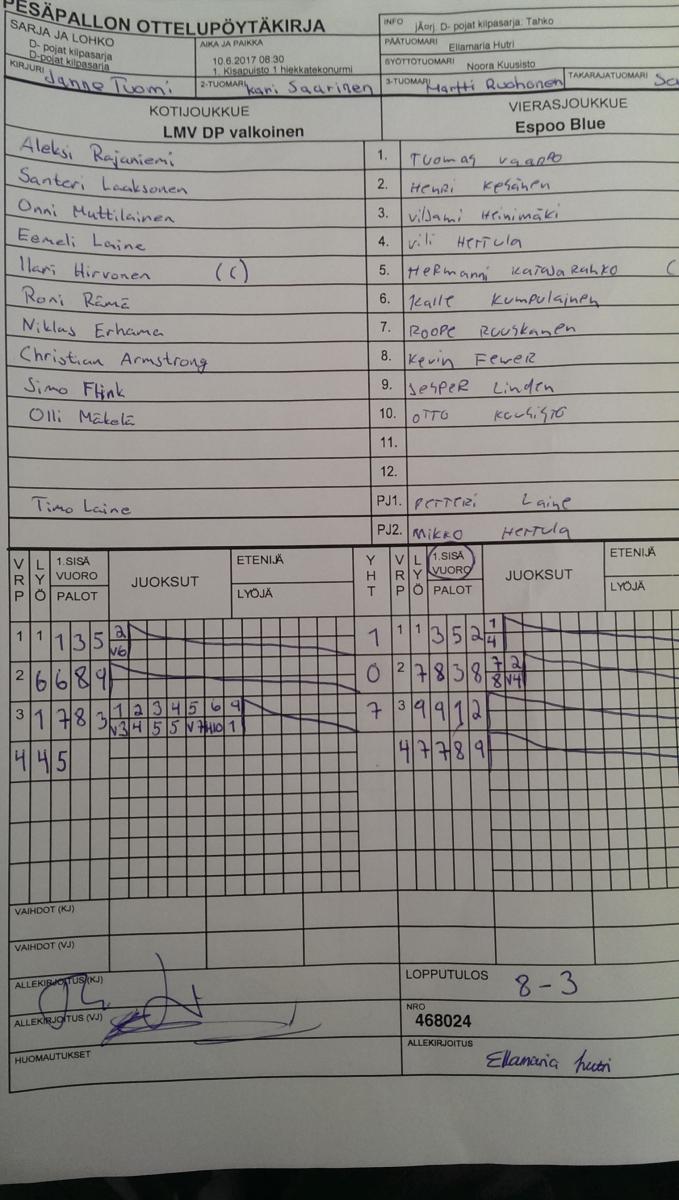 PESÄPALLON OTTELUPÖYTÄKIRJA
INFO jÄorj. D- pojat kilpasarja: Tahko
SARJA JA LOHKO
D- pojat kilpasarja
D-pojat kilpasarja
AIKA JA PAIKKA
10.6.2017 08:30
1. Kisapuisto 1 hiekkatekonurmi
PÄÄTUOMARI Ellamaria Hutri
SYÖTTÖTUOMARI Noora Kuusisto
KIRJURI Janne Tuomi
2-TUOMARI Kari Saarinen
3-TUOMARI Martti Ruohonen
TAKARAJATUOMARI
KOTIJOUKKUE
LMV DP valkoinen
VIERASJOUKKUE
Espoo Blue
Aleksi Rajaniemi 1. Tuomas
Santeri Laaksonen 2. Henri Kesänen
Onni Muttilainen 3. Viljami Heinimäki
Eemeli Laine 4. Vili Hertula
Ilari Hirvonen (C) 5. Hermanni Katajarahko (
Roni Rämä 6. Kalle Kumpulainen
Niklas Erhama 7. Roope Ruuskanen
Christian Armstrong 8. Kevin Fewer
Simo Flink 9. Jesper Linden
Olli Mäkelä 10. Otto
11.
12.
Timo Laine PJ1. Petteri Laine
PJ2. Mikko Hertula
VRP LYÖ 1.SISÄ VUORO PALOT JUOKSUT ETENIJÄ LYÖJÄ YHT VRP LYÖ 1.SISÄ VUORO PALOT JUOKSUT ETENIJÄ LYÖJÄ
1 1 1 3 5 2 1 1 1 3 5 2 1
V6 4
2 6 6 8 9 0 2 7 8 3 8 7 2
8 V4
3 1 7 8 3 1 2 3 4 5 6 9 7 3 9 9 1 2
V3 4 5 5 V7 H10 1
4 4 5 4 7 7 8 9
VAIHDOT (KJ)
VAIHDOT (VJ)
ALLEKIRJOITUS (KJ)
LOPPUTULOS 8-3
ALLEKIRJOITUS (VJ)
NRO
468024
HUOMAUTUKSET
ALLEKIRJOITUS
Ellamaria Hutri